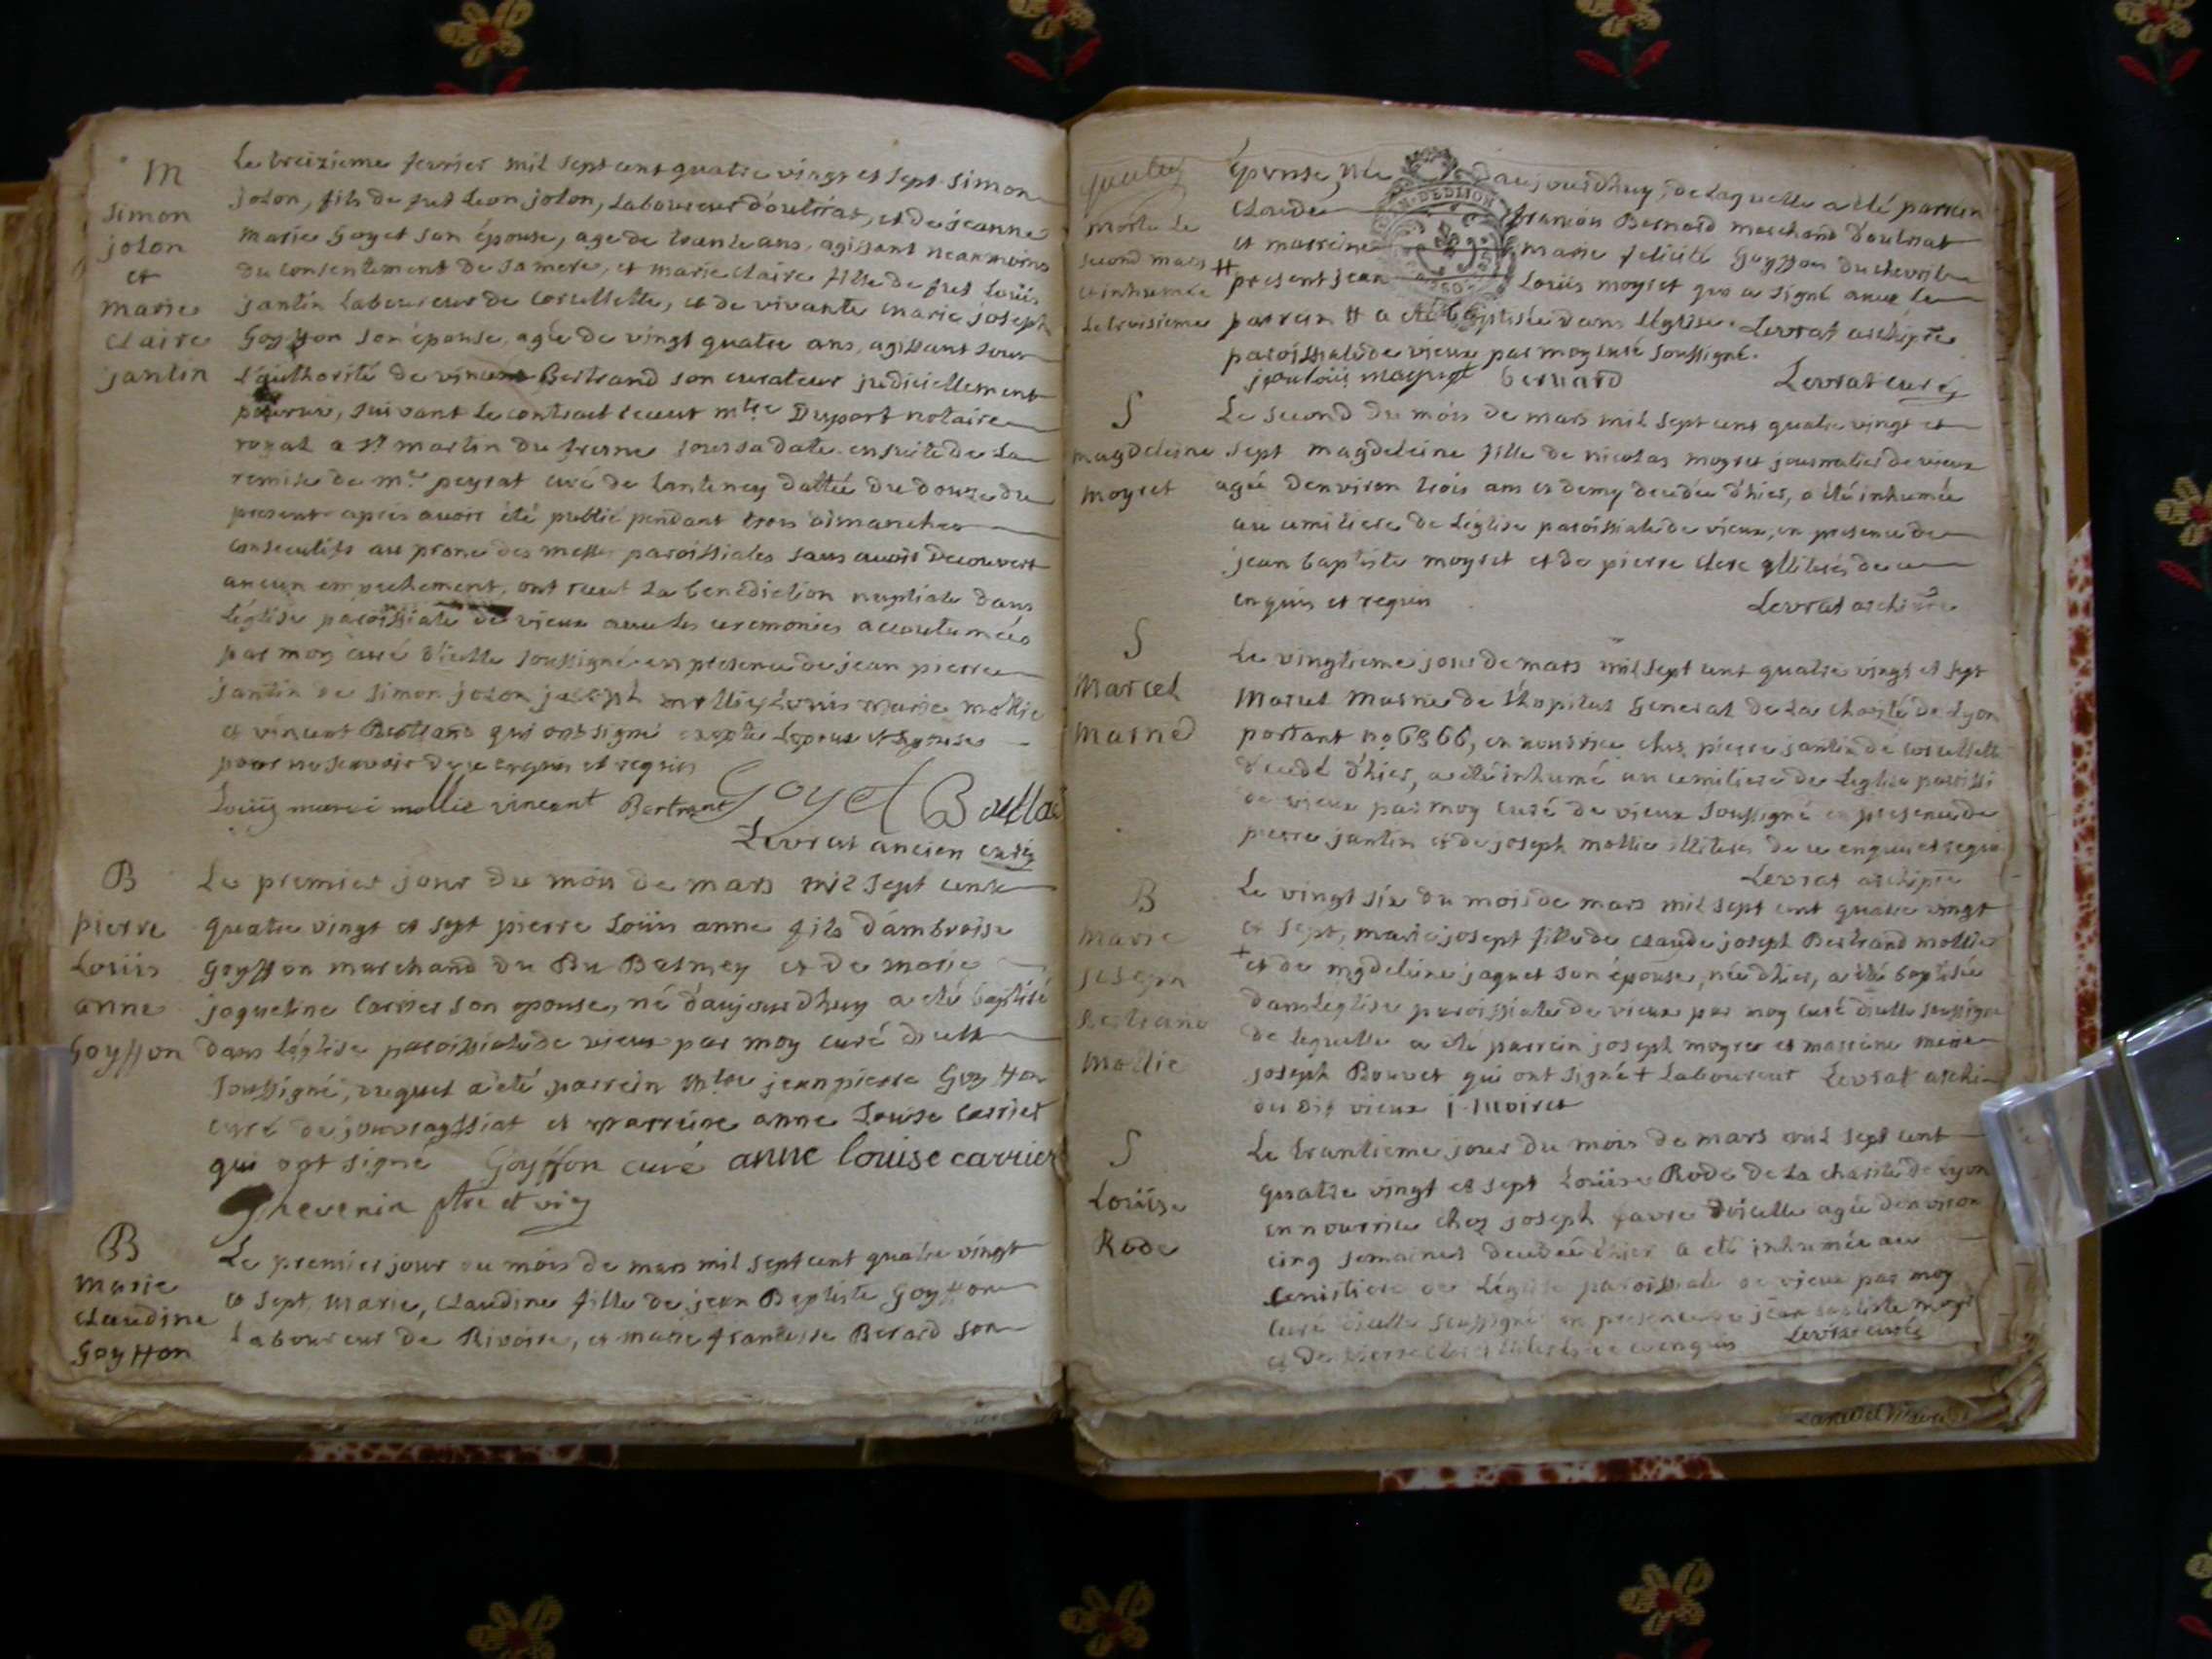 M
Simon
jolon
et
Marie
Claire
jantin
Le treizieme fevrier mil sept cent quatre vingt et sept Simon
jolon, fils de feu Leon jolon, Laboureur d'oultriat, et de jeanne
Marie Goyet son épouse, age de trente ans, agissant neanmoins
du consentement de sa mere, et Marie Claire fille de feu Loüis
jantin Laboureur de Corcellette, et de vivante Marie joseph
Goyffon son épouse, agée de vingt quatre ans, agissant sous
L'authorité de vincent Bertrand son curateur judiciellement
pourvu, suivant Le contract receut mtre Duport notaire
royal a st martin du fresne sous sa date ensuite de La
remise de mr peyrat curé de Lantenay dattée du douze du
present apres avoir été publié pendant trois dimanches
consecutifs au prone des messes paroissiales sans avoir decouvert
aucun empechement, ont receut La benediction nuptiale dans
L'église paroissiale de vieux avec Les ceremonies accoutumées
par moy curé d'icelle soussigné en presence de jean pierre
jantin de Simon jolon joseph mollie Loüis marie mollie
et vincent Bertrand qui ont signé excepté Lepoux et Lepouse
pour ne scavoir de ce enquis et requis
Loüis marie mollie vincent Bertrant Goyet
Levrat ancien curé
B
pierre
Loüis
anne
Goyffon
Le premier jour du mois de mars mil sept cent
quatre vingt et sept pierre Loüis anne fils d'ambroise
Goyffon marchand du Balmey et de marie
jaqueline Carrier son epouse, né d'aujourdhuy a eté baptisé
dans L'église paroissiale de vieux par moy curé d'icelle
soussigné, duquel a eté parrein mtre jean pierre Goyffon
curé de et marreine anne Louise Carrier
qui ont signé Goyffon curé anne louise carrier
Thevenin ptre et vic
B
Marie
Claudine
Goyffon
Le premier jour du mois de mars mil sept cent quatre vingt
et sept, Marie, Claudine fille de jean Baptiste Goyffon
Laboureur de Rivoire, et marie françoise Berard son
morte Le
second mars
et inhumée
Le troisieme
épouse, née d'aujourdhuy, de Laquelle a eté parrein
Claude françois Bernard marchand d'oultriat
et marreine marie felicité Goyffon du chevril
present jean Loüis moyret qui a signé avec Le
parrein # a eté baptisée dans L'église Levrat archiptre
paroissiale de vieux par moy curé soussigné.
jean loüis moyret bernard Levrat curé
S
magdeleine
moyret
Le second du mois de mars mil sept cent quatre vingt et
sept magdeleine fille de nicolas moyret journalier de vieux
agée d'environ trois ans et demy decedée d'hier, a été inhumée
au cimitiere de L'église paroissiale de vieux, en presence de
jean baptiste moyret et de pierre clerc illiterés de ce
enquis et requis Levrat archiptre
S
Marcel
Marne
Le vingtieme jour de mars mil sept cent quatre vingt et sept
Marcel Marne de L'hopital General de La Charité de Lyon
portant no 6366, en nourrice chez pierre jantin de corcellette
decedé d'hier, a eté inhumé au cimitiere de L'église paroissi
de vieux par moy curé de vieux soussigné en presence de
pierre jantin et de joseph mollie illiterés de ce enquis et requis
Levrat archiptre
B
Marie
joseph
Bertrand
Mollie
Le vingt six du mois de mars mil sept cent quatre vingt
et sept, marie josept fille de Claude joseph Bertrand mollie
+ et de magdeleine jaquet son épouse, née d'hier, a été baptisée
dans L'église paroissiale de vieux par moy curé d'icelle soussigné
de Laquelle a eté parrein joseph moyret et marreine marie
joseph Bouvet qui ont signé + Laboureur Levrat archi
du dit vieux j. moiret
S
Loüise
Rode
Le trentieme jour du mois de mars mil sept cent
quatre vingt et sept Loüise Rode de La charité de Lyon
en nourrice chez joseph favre d'icelle agée d'environ
cinq semaines decedée d'hier a eté inhumée au
Cemitiere de L'église paroissiale de vieux par moy
Curé d'icelle soussigné en presence de jean baptiste moyr
et de pierre clerc illiterés de ce enquis Levrat curé